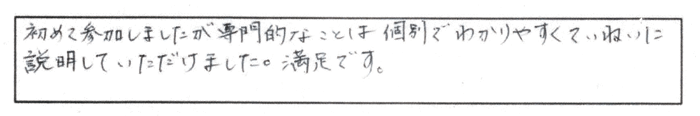 初めて参加しましたが専門的なことは個別でわかりやすくていねいに
説明していただけました。満足です。